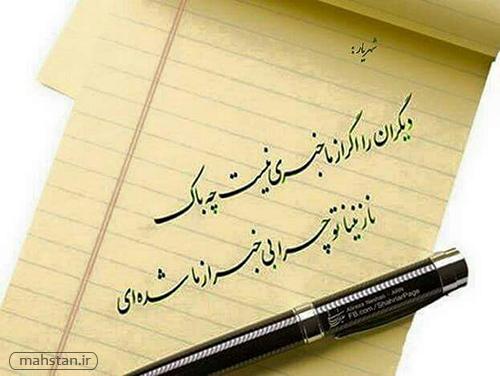 شهریار :
دیگران را اگر از ما خبری نیست چه باک
نازنینا تو چرا بی خبر از ما شده ای
Alireza Neshati - ARN
FB.com/ShahriarPage
mahstan.ir